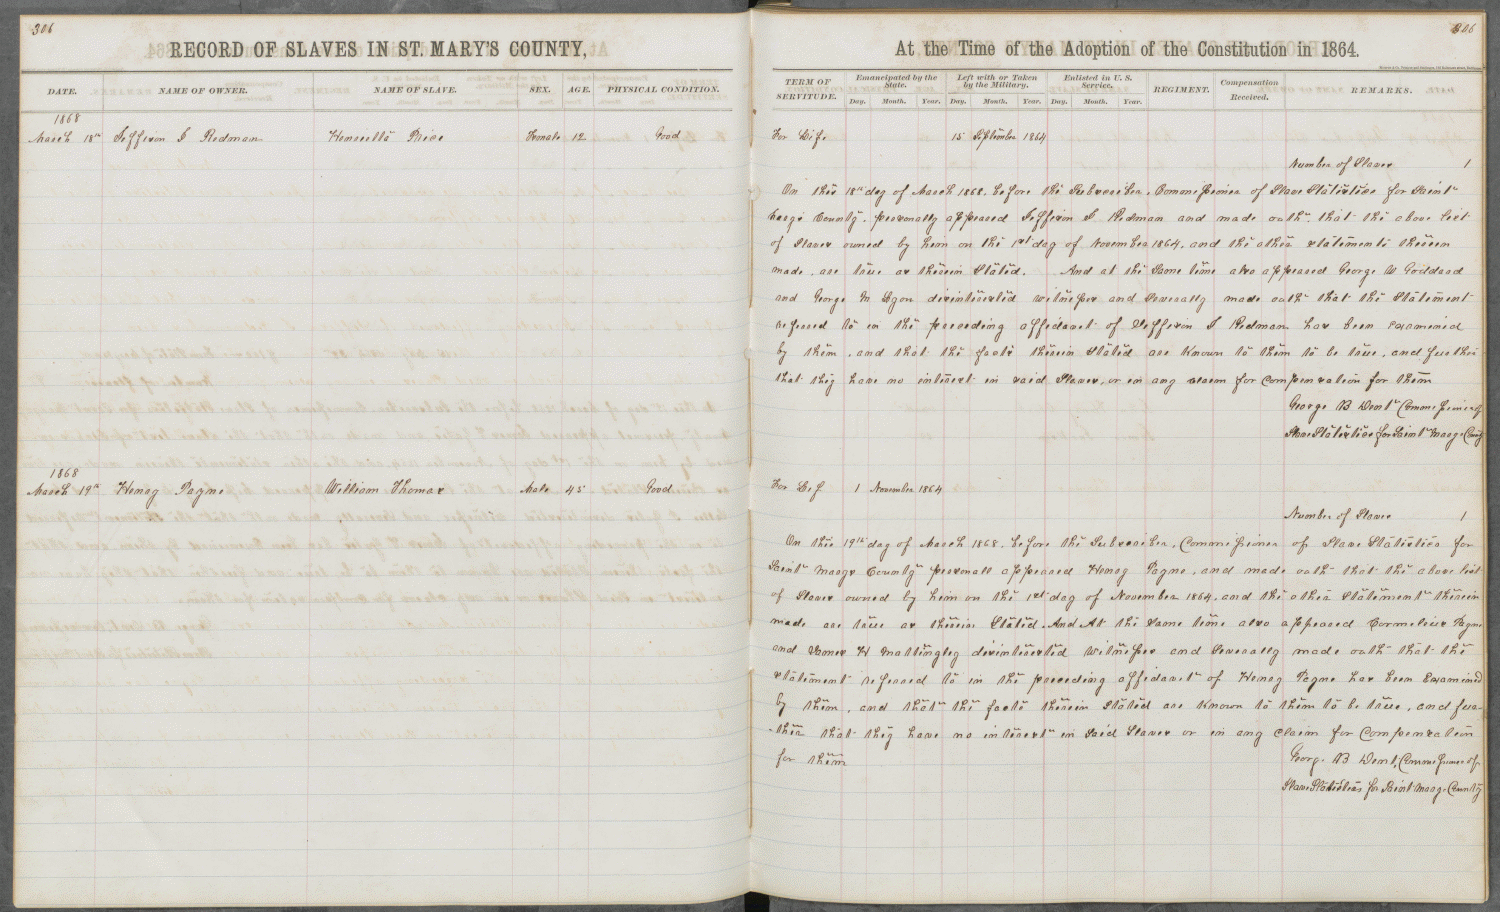 306
RECORD OF SLAVES IN ST. MARY'S COUNTY,
DATE. NAME OF OWNER. NAME OF SLAVE. SEX. AGE. PHYSICAL CONDITION.
1868
March 18th Jefferson J Redman Henrietta Price Female 12 Good
1868
March 19th Henry Payne William Thomas Male 45 Good
306
At the Time of the Adoption of the Constitution in 1864.
TERM OF SERVITUDE. Emancipated by the State. Left with or Taken by the Military. Enlisted in U. S. Service. REGIMENT. Compensation Received. REMARKS.
Day. Month. Year. Day. Month. Year. Day. Month. Year.
For Life 15 September 1864
Number of Slaves 1
On this 18th day of March 1868. before the Subscriber, Commissioner of Slave Statistics for Saint
Marys County, personally appeared Jefferson J. Redman and made oath, that the above list
of Slaves owned by him on the 1st day of November 1864, and the other statements therein
made, are true as therein Stated. And at the Same time also appeared George W Goddard
and George M Lyon disinterested witnesses and Severally made oath that the Statement
referred to in the preceeding affidavit of Jefferson J Redman has been examined
by them, and that the facts therein Stated are Known to them to be true, and further
that they have no interest in said Slaves, or in any claim for compensation for them
George B Dent Commissioner of
Slave Statistics for Saint Marys County
For Lif 1 November 1864
Number of Slaves 1
On this 19th day of March 1868. before the Subscriber, Commissioner of Slave Statistics for
Saint Marys County personall appeared Henry Payne, and made oath that the above list
of Slaves owned by him on the 1st day of November 1864, and the other Statement therein
made are true as therein Stated. And At the same time also appeared Cornelius Payne
and James H Mattingley disinterested witnesses and Severally made oath that the
statement referred to in the preceding affidavit of Henry Payne has been Examined
by them, and that the facts therein stated are Known to them to be true, and fur-
-ther that they have no interest in Said Slaves or in any claim for Compensation
for them
George B Dent, Commissioner of
Slave Statistics for Saint Marys County